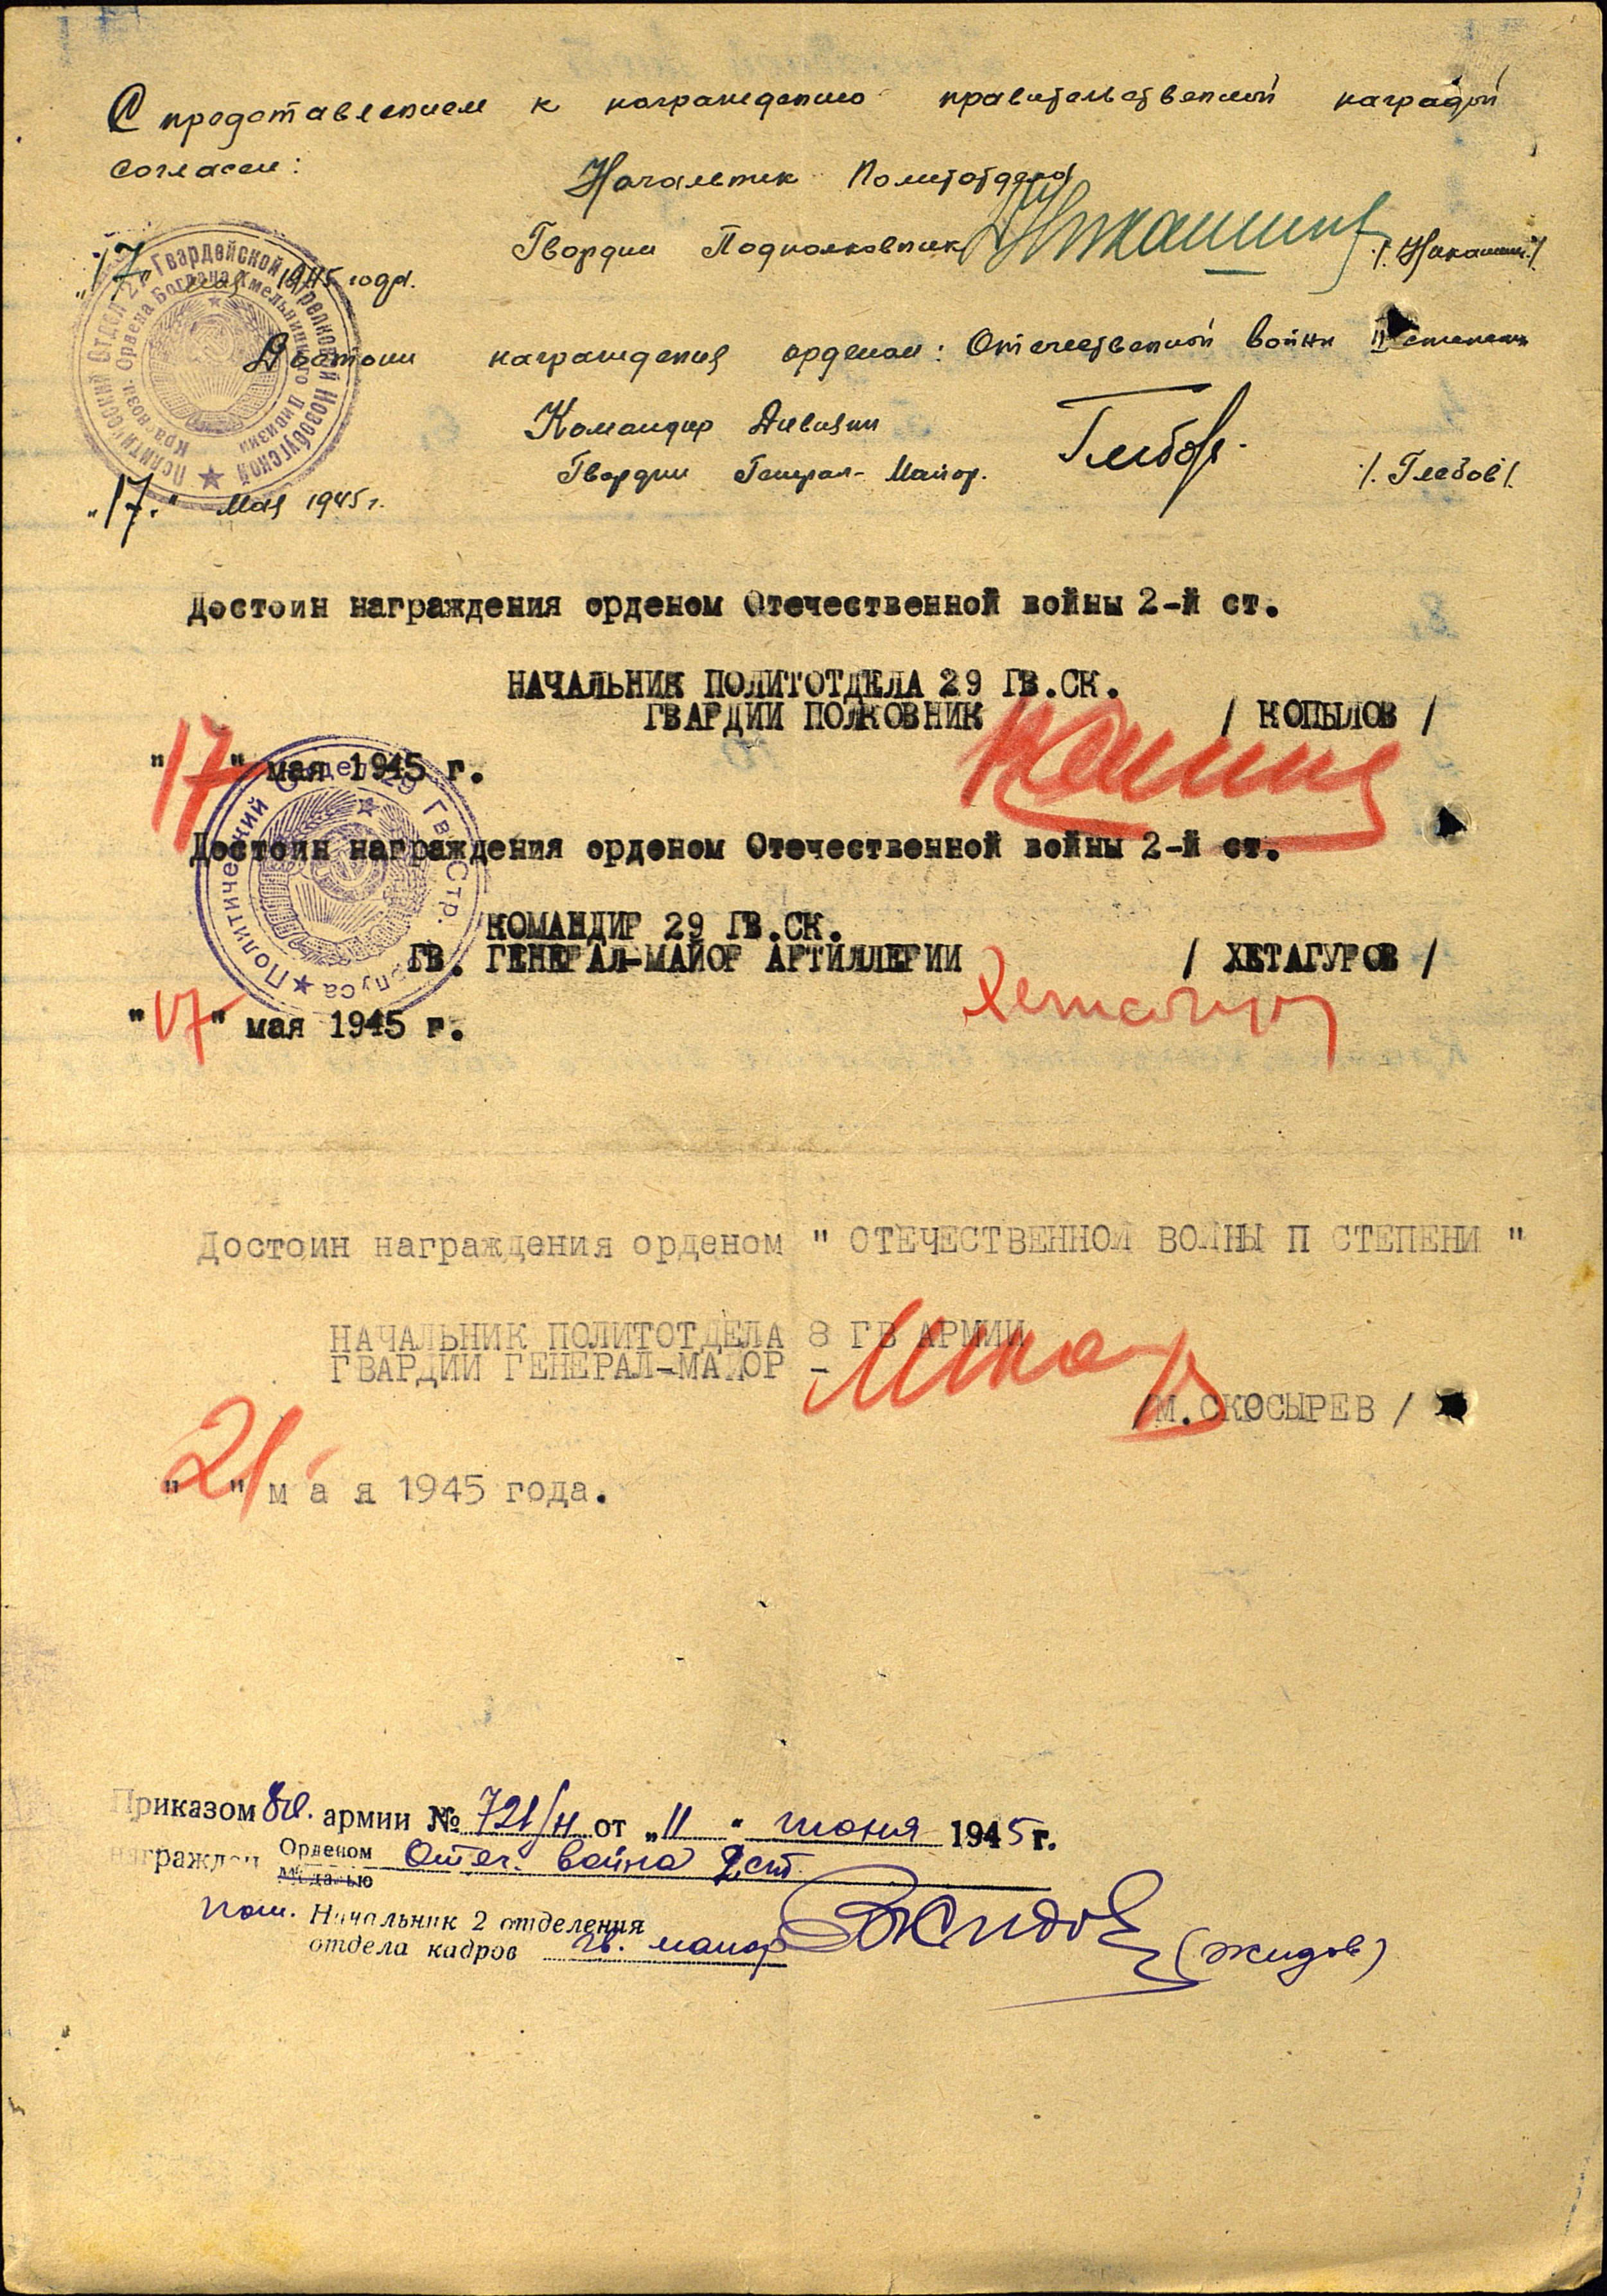 С представлением к награждению правительственной наградой
согласен:
Начальник Политотдела
Гвардии Подполковник
/. Никашин. /.
"17" мая 1945 года.
Политический Отдел 27 Гвардейской Стрелковой Новобугской
Краснозн. Ордена Богдана Хмельницкого Дивизии
Достоин награждения орденом: Отечественной войны II степени
Командир Дивизии
Гвардии Генерал-Майор.
Глебов
/. Глебов /.
"17." Мая 1945 г.
Достоин награждения орденом Отечественной войны 2-й ст.
НАЧАЛЬНИК ПОЛИТОТДЕЛА 29 ГВ.СК.
ГВАРДИИ ПОЛКОВНИК / КОПЫЛОВ /
"17" мая 1945 г.
Политический Отдел 29 Гв. Стр. Корпуса
Достоин награждения орденом Отечественной войны 2-й ст.
КОМАНДИР 29 ГВ.СК.
ГВ. ГЕНЕРАЛ-МАЙОР АРТИЛЛЕРИИ / ХЕТАГУРОВ /
Хетагуров
"17" мая 1945 г.
Достоин награждения орденом " ОТЕЧЕСТВЕННОЙ ВОЙНЫ П СТЕПЕНИ "
НАЧАЛЬНИК ПОЛИТОТДЕЛА 8 ГВ АРМИИ
ГВАРДИИ ГЕНЕРАЛ-МАЙОР -
/М.СКОСЫРЕВ /
"21" м а я 1945 года.
Приказом 8 гв. армии № 721/н от "11" июня 1945 г.
награжден Орденом Отеч. война 2 ст.
Медалью
пом. Начальник 2 отделения
отдела кадров гв. майор Жидов (Жидов)